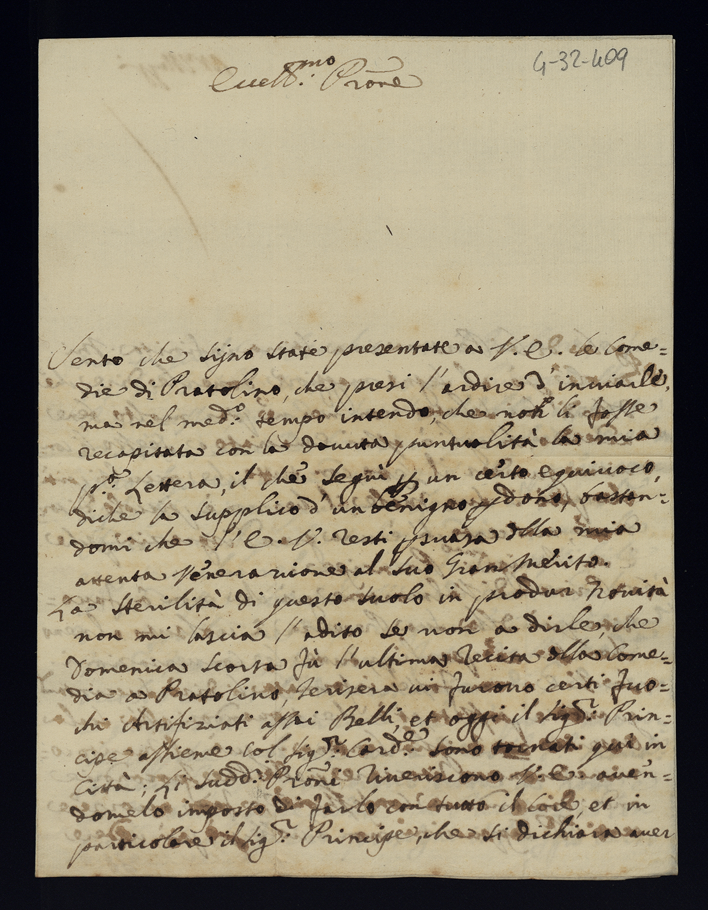 4-32-409
Ecell:mo Prōne
Sento che sijno state presentate a V. E. le Come=
die di Pratolino, che presi l'ardire d'inviarle,
ma nel med:o tempo intendo, che non li fosse
recapitata con la dovuta puntualità la mia
pr:a Lettera, il che seguì p un certo equivoco,
diche la supplico d'un benigno pdono, bastan=
domi che l'E. V. resti psuasa dlla mia
attenta Venerazione al suo Gran Merito.
La Sterilità di questo suolo in produr Novità
non mi lascia l'adito se non a dirle, che
Domenica scorsa fù l'ultima recita dlla Come=
dia a Pratolino, Jerisera vi furono certi fuo=
chi Artifiziati assai Belli, et oggi il sig:r Prin=
cipe assieme col sig:r Card:e sono tornati qui in
Città; Li sudd:i Prōni riveriscono V. E. aven=
domelo imposto di farlo con tutto il core, et in
particolare il sig:r Principe, che si dichiara aver